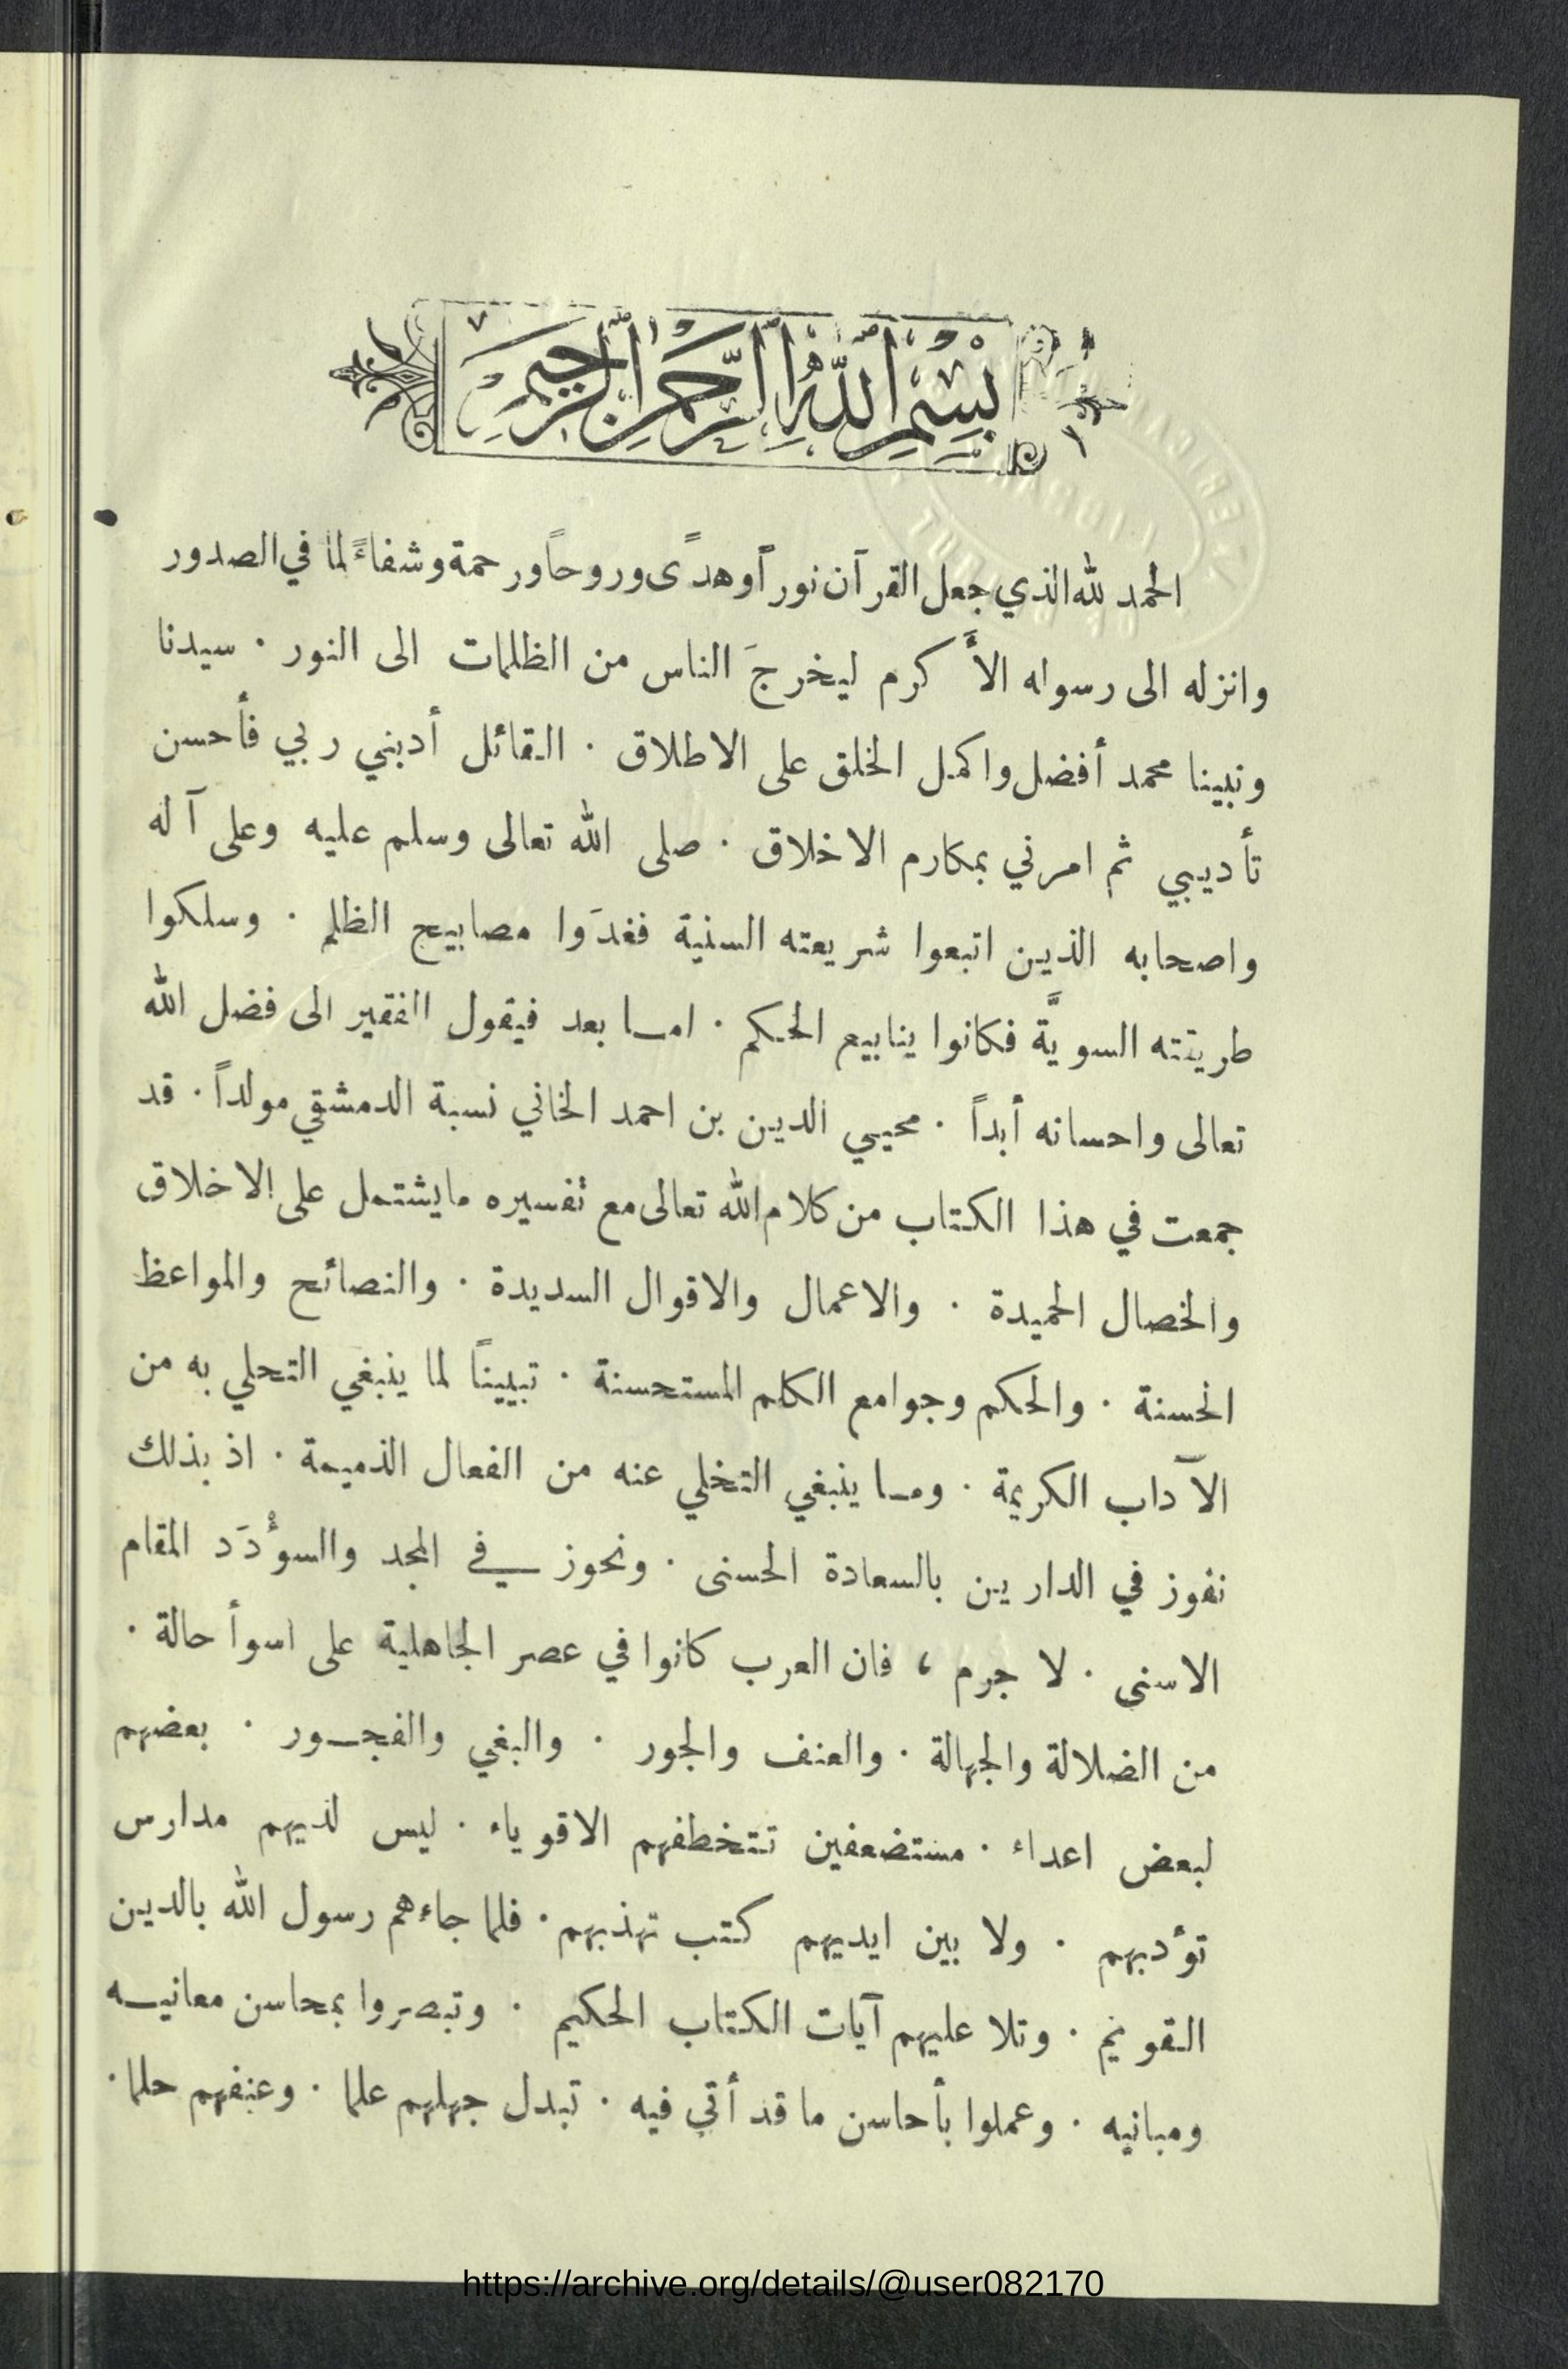 بِسْمِ اللّٰهِ الرَّحْمٰنِ الرَّحِيمِ
الحمد لله الذي جعل القرآن نوراً وهدًى وروحاً ورحمة وشفاءً لما في الصدور
وانزله الى رسوله الأَكرم ليخرجَ الناس من الظلمات الى النور · سيدنا
ونبينا محمد أفضل واكمل الخلق على الاطلاق · القائل أدبني ربي فأحسن
تأديبي ثم امرني بمكارم الاخلاق · صلى الله تعالى وسلم عليه وعلى آله
واصحابه الذين اتبعوا شريعته السنية فغدَوا مصابيح الظلم · وسلكوا
طريقته السويَّة فكانوا ينابيع الحكم · اما بعد فيقول الفقير الى فضل الله
تعالى واحسانه أبداً · محيي الدين بن احمد الخاني نسبة الدمشقي مولداً · قد
جمعت في هذا الكتاب من كلام الله تعالى مع تفسيره ما يشتمل على الاخلاق
والخصال الحميدة · والاعمال والاقوال السديدة · والنصائح والمواعظ
الحسنة · والحكم وجوامع الكلم المستحسنة · تبييناً لما ينبغي التحلي به من
الآداب الكريمة · وما ينبغي التخلي عنه من الفعال الذميمة · اذ بذلك
نفوز في الدارين بالسعادة الحسنى · ونحوز في المجد والسوْؤدَد المقام
الاسنى · لا جرم ، فان العرب كانوا في عصر الجاهلية على اسوأ حالة ·
من الضلالة والجهالة · والعنف والجور · والبغي والفجور · بعضهم
لبعض اعداء · مستضعفين تتخطفهم الاقوياء · ليس لديهم مدارس
تؤدبهم · ولا بين ايديهم كتب تهذبهم · فلما جاءهم رسول الله بالدين
القويم · وتلا عليهم آيات الكتاب الحكيم · وتبصروا بمحاسن معانيه
ومبانيه · وعملوا بأحاسن ما قد أتي فيه · تبدل جهلهم علما · وعنفهم حلما ·
https://archive.org/details/@user082170